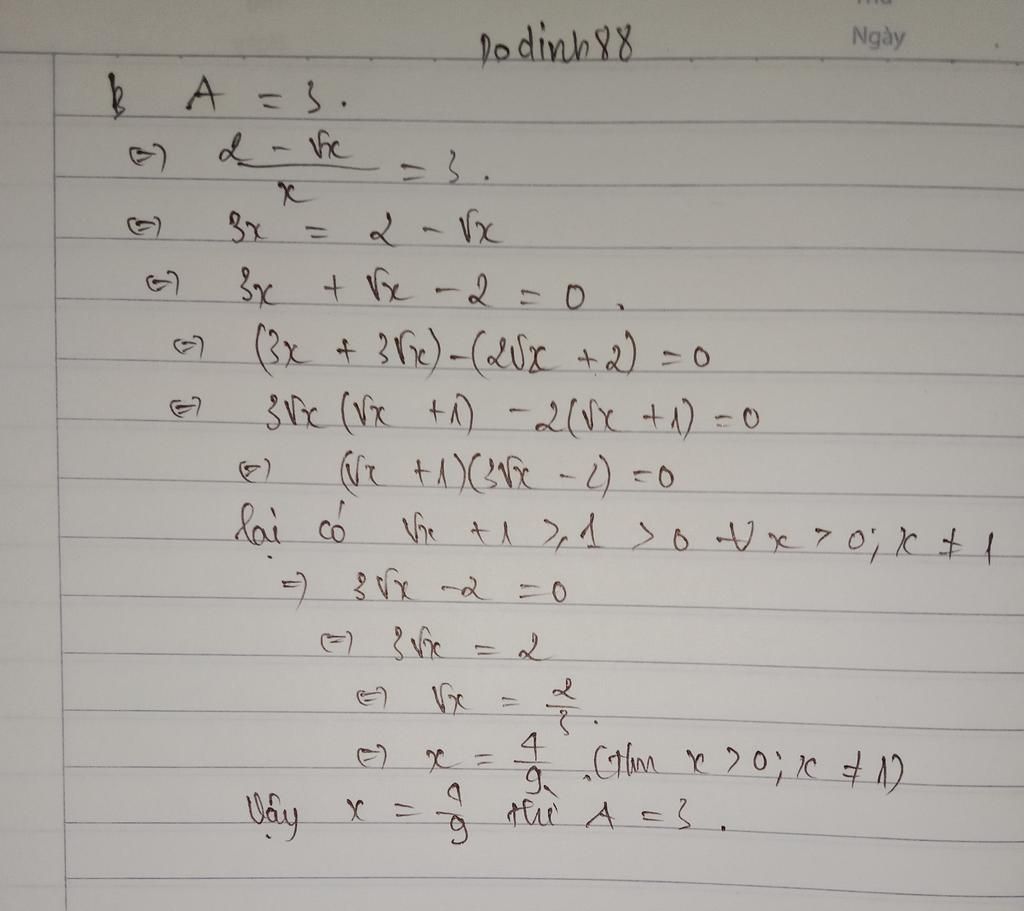 Dodinh88
Ngày
b A = 3.
⇔ (2 - √x)/x = 3.
⇔ 3x = 2 - √x
⇔ 3x + √x - 2 = 0.
⇔ (3x + 3√x) - (2√x + 2) = 0
⇔ 3√x (√x + 1) - 2(√x + 1) = 0
⇔ (√x + 1)(3√x - 2) = 0
lại có √x + 1 ≥ 1 > 0 ∀ x > 0; x ≠ 1
⇒ 3√x - 2 = 0
⇔ 3√x = 2
⇔ √x = 2/3.
⇔ x = 4/9. (thm x > 0; x ≠ 1)
Vậy x = 4/9 thì A = 3.